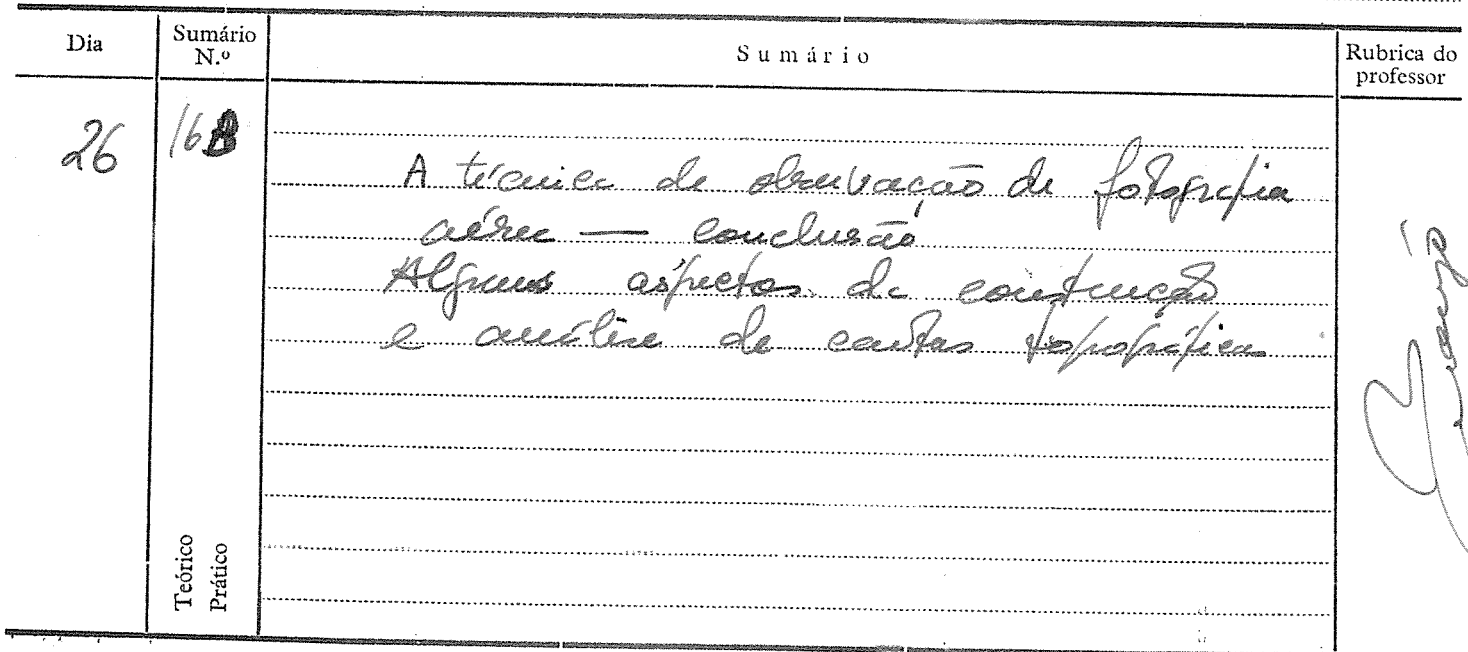 Dia Sumário N.º Sumário Rubrica do professor
26 16B
A técnica de observação de fotografia
aérea — conclusão
Alguns aspectos de construção
e análise de cartas topográfica
Teórico
Prático